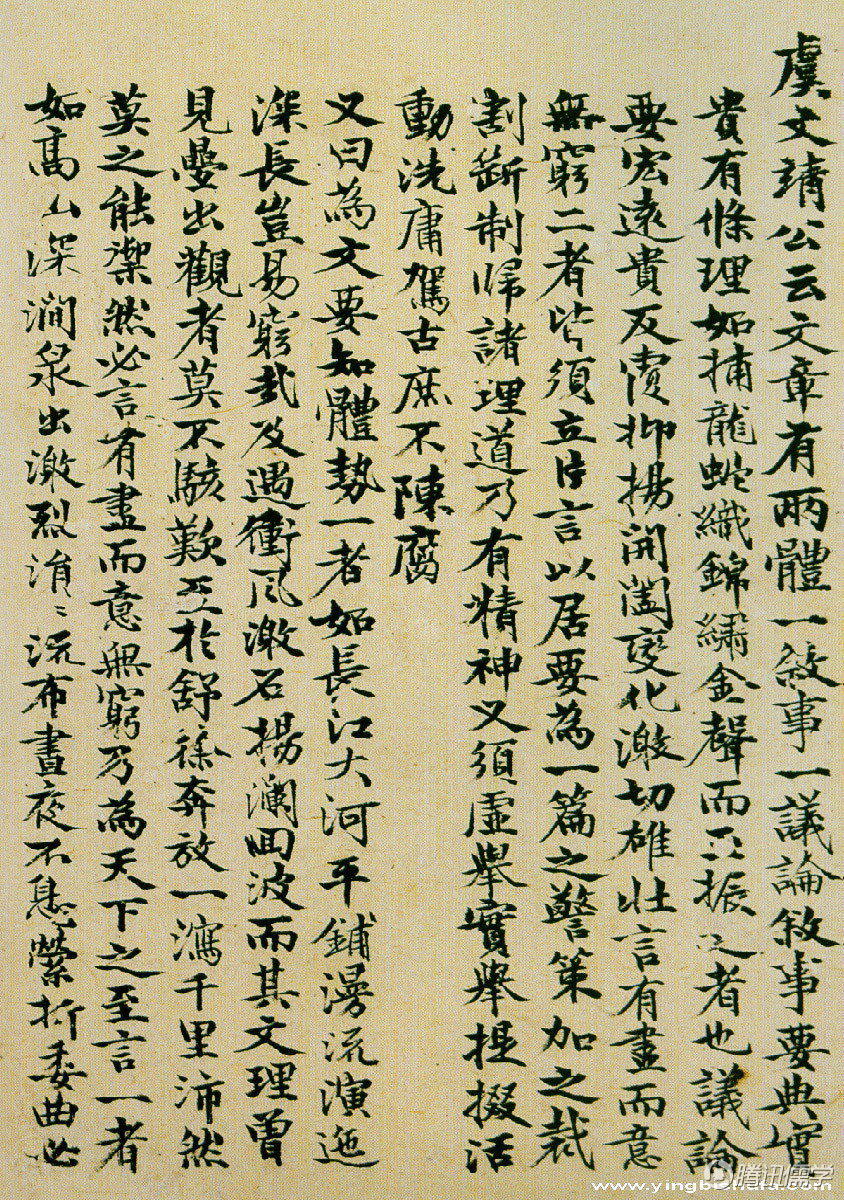 虞文靖公云文章有兩體一敘事一議論敘事要典實
貴有條理如捕龍蛇織錦繡金聲而玉振之者也議論
要宏遠貴反覆抑揚開闔變化激切雄壯言有盡而意
無窮二者皆須立片言以居要為一篇之警策加之裁
割斷制歸諸理道乃有精神又須虛舉實舉提掇活
動洗庸駕古庶不陳腐
又曰為文要知體勢一者如長江大河平鋪漫流演迤
深長豈易窮哉及遇衝風激石揚瀾回波而其文理曾
見疊出觀者莫不駭歎至於舒徐奔放一瀉千里沛然
莫之能禦然必言有盡而意無窮乃為天下之至言一者
如高山深澗泉出激烈涓〻流布晝夜不息縈折委曲必
腾讯儒学
www.yingbishufa.com